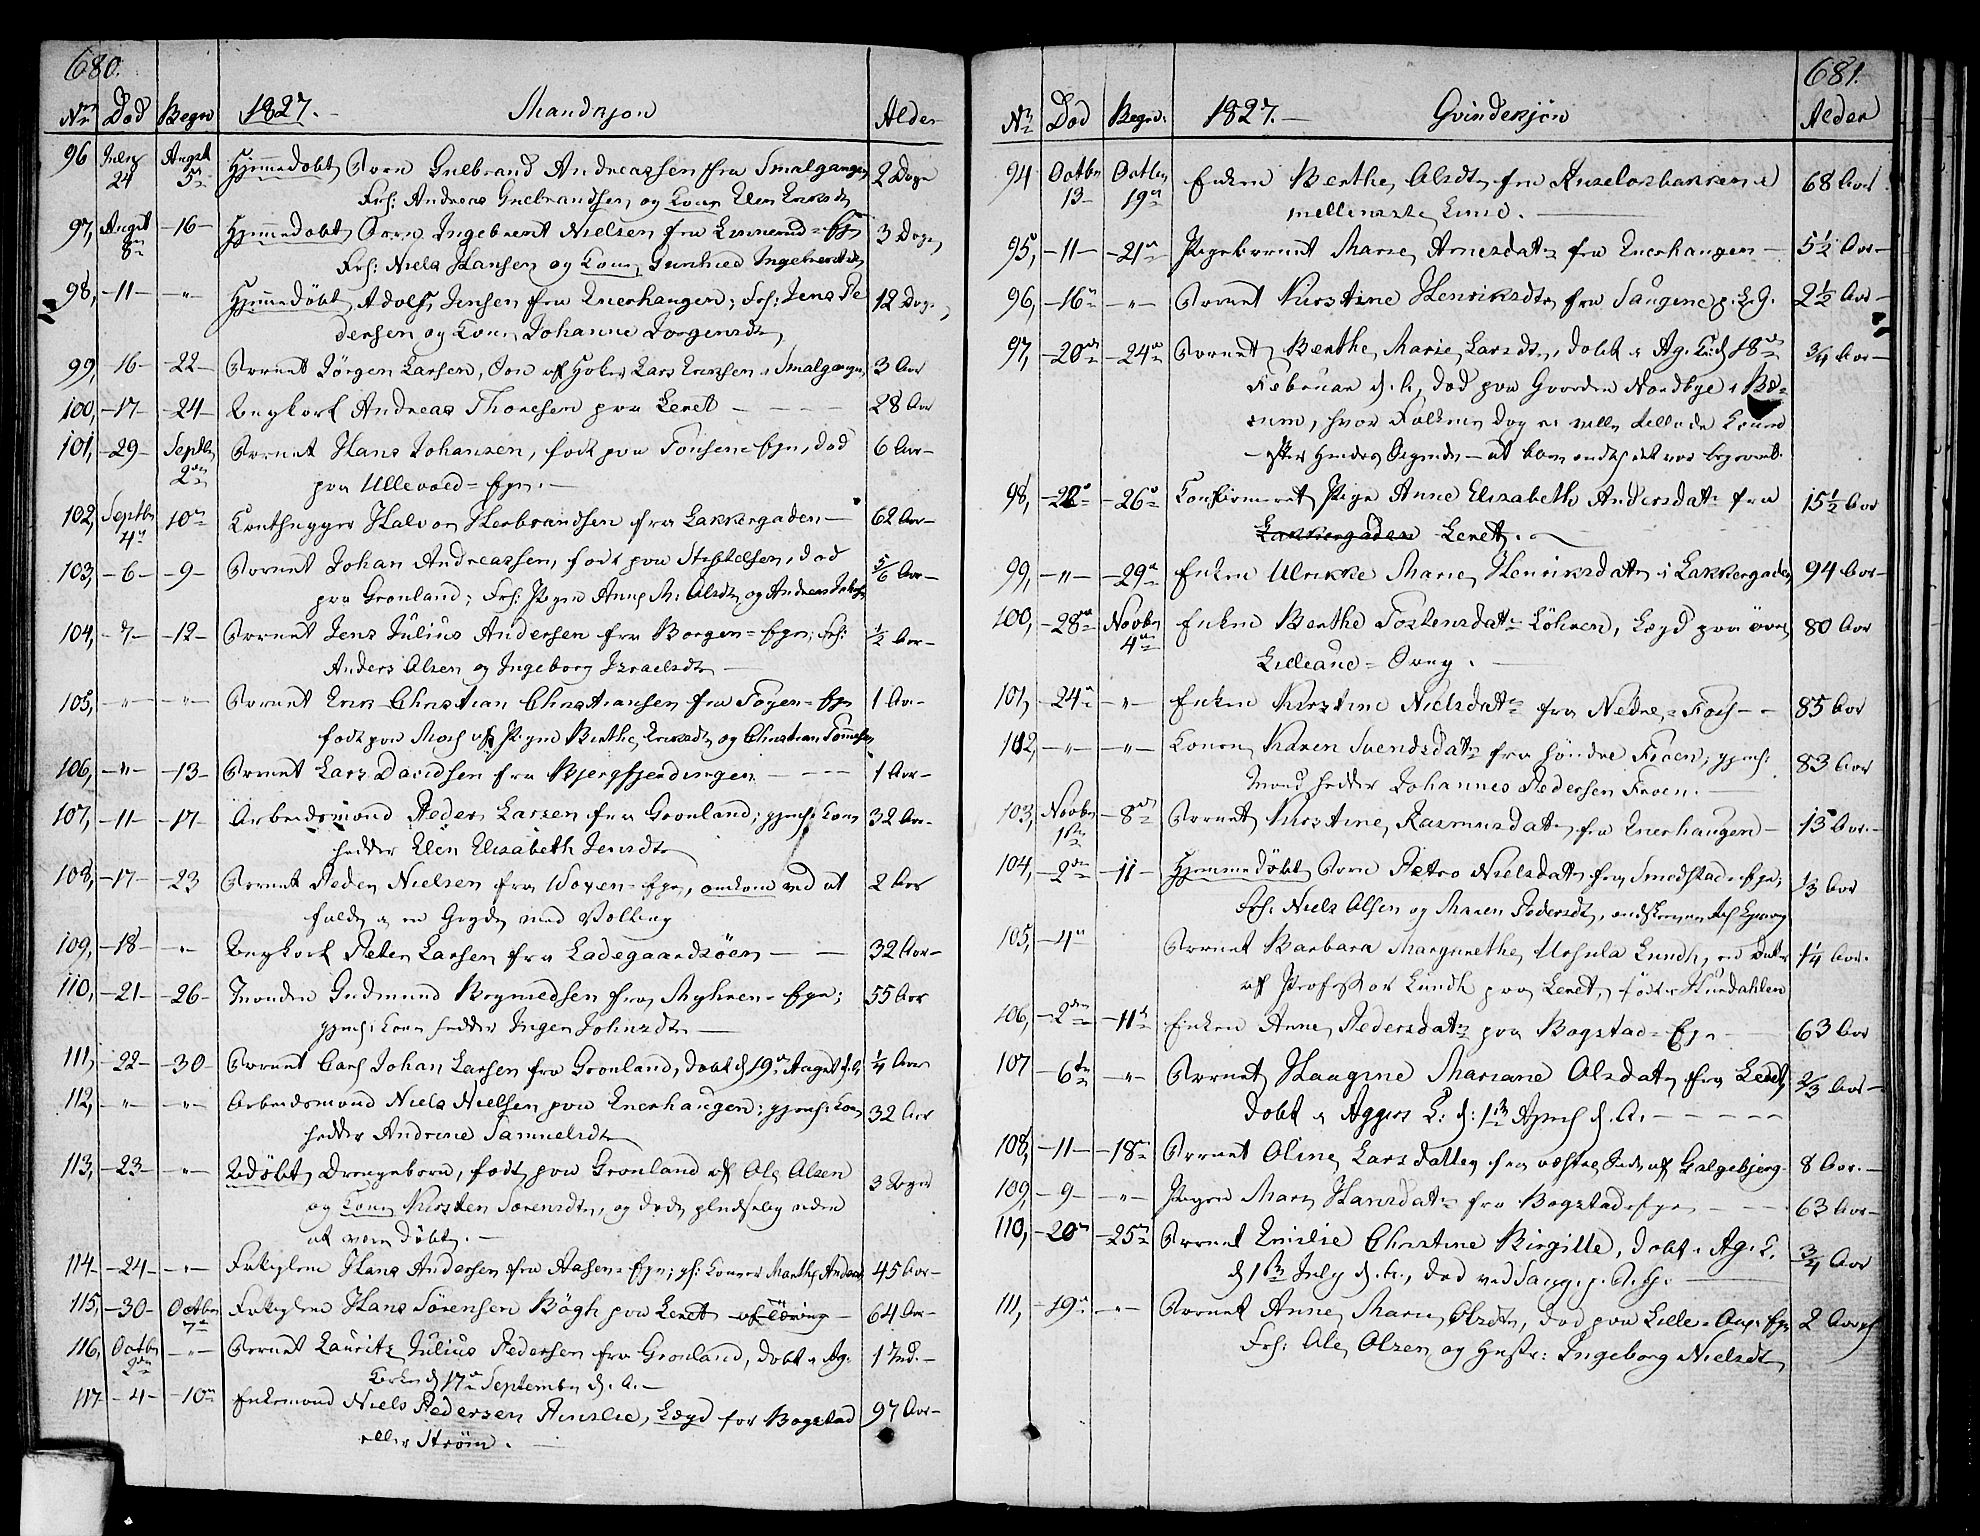 680.
Nr Død Begr 1827. Mandkjøn Alder
96 July 24 August 5te Hjemmedøbt Barn Gulbrand Andreassen fra Smalgangen 2 Dage
Frs: Andreas Gulbrandsen og Kone Elen Eriksdtr
97, August 8de -16- Hjemmedøbt Barn Ingebrent Nielsen fra Ejn 3 Dage
Frs: Niels Hansen og Kone Gunhild
98, -11- -"- Hjemmedøbt Adolf Jensen fra Enerhaugen; Frs: Jens Pe 12 Dage
dersen og Kone Johanne Jørgensdtr
99, -16- -22- Barnet Jørgen Larsen, Søn af Høker Lars Eriksen i Smalgangen 3 Aar
100, -17- -24- Ungkarl Andreas Thoresen paa Leret 28 Aar
101, -29- Septbr 2den Barnet Hans Johansen, født paa Tonsen-Ejn, død 6 Aar-
paa Ullevold-Ejn.-
102, Septbr 4de 10de Halvor Herbrandsen fra Lakkergaden 62 Aar-
103, -6- -9- Barnet Johan Andreassen, født paa Stiftelsen, død 5/6 Aar-
paa Grønland; Frs: Pigen Anne M: Olsdtr og Andreas
104, -7- -12- Barnet Jens Julius Andersen fra Borgen-Ejn; Frs: 1/2 Aar-
Anders Olsen og Ingeborg Israelsdtr
105, -"- -"- Barnet Erik Christian Christiansen fra Tøyen-Ejn 1 Aar-
født paa Moss af Pigen Berthe Eriksdtr og Christian
106, -"- -13- Barnet Lars Davidsen fra Bjergfjerdingen 1 Aar-
107, -11- -17- Arbeidsmand Peder Larsen fra Grønland; gjenl: Kone 32 Aar-
hedder Elen Elisabeth Jensdtr
108, -17- -23 Barnet Peder Nielsen fra Woxen-Ejn, omkom ved at 2 Aar
falde i en Gryde med Velling
109, -18- -"- Ungkarl Peter Larsen fra Ladegaardsöen 32 Aar-
110, -21- -26- Manden Gudmund fra Myhren-Ejn; 55 Aar
gjenl: Kone hedder Inger Johnsdtr
111, -22- -30- Barnet Carl Johan Larsen fra Grønland, døbt d 19de August d. A. 1/4 Aar
112, -"- -"- Arbeidsmand Niels Nielsen paa Enerhaugen; gjenl: Kone 32 Aar
hedder Andrine Samuelsdtr
113, -23- -"- Udøbt Drengebarn, født paa Grønland af Ole Olsen 3 Dage
og Kone Kirsten Sørensdtr, og døde pludselig uden
at være døbt.-
114- -24- -"- Hans Andersen fra Aasen-Ejn; gl: Konen Marthe Anders 45 Aar-
115, -30- Octbr 7de Hans Sørensen Bögh paa Leret 64 Aar-
116, Octbr 2den -"- Barnet Lauritz Julius Pedersen fra Grønland, døbt i Ag. 1 Md.-
Kirke d 17de September d. A.-
117- -4- -10de Enkemand Niels Pedersen, Lægd for Bogstad 97 Aar-
eller Strøm.
681.
Nr Død Begr: 1827.- Qvindekjøn Alder
94 Octbr 13- Octbr 19de Enken Berthe Olsdtr fra Anzelosbakken i 68 Aar
mellemste Lund.
95, -11- -21de Pigebarnet Marie Arnesdatr fra Enerhaugen- 5 1/2 Aar-
96, -16de -"- Barnet Kirstine Henriksdtr fra Saugene p. L. G. 2 1/2 Aar-
97, -20de -24de Barnet Berthe Marie Larsdtr, døbt i Ag. Kirk 18de 3/4 Aar-
Februar d. A., død paa Gaarden Nordbye i Bæ-
rum, hvor Folkene dog ei ville
Hendes - at
98, -22de -26de Confirmeret Pige Anne Elizabeth Andersdatr fra 15 1/2 Aar
Lakkergaden Leret.
99, -"- -29de Enken Ulrikke Marie Henriksdatr i Lakkergaden 94 Aar-
100, -28de Novbr 4de Enken Berthe Tostensdatr Löhren, Lægd paa øvre 80 Aar
Lilleaue-Saug.
101, -24de -"- Enken Kirstine Nielsdatr fra Nedre-Foss- 85 Aar
102, -"- -"- Konen Karen Svendsdatr fra söndre Froen; gjenl: 83 Aar
Mand hedder Johannes Pedersen Froen.
103, Novbr 1ste -8de Barnet Kirstine Rasmusdatr fra Enerhaugen- 13 Aar.-
104, -2den -11- Hjemmedøbt Barn Petra Nielsdatr fra Smedstad-Ejn; 1/3 Aar
Frs: Niels Olsen og Maren Pedersdtr,
105, -4de Barnet Barbara Margrethe Ursula Lundh, en Datter 1/4 Aar.
af Professor Lundh paa Leret, född i Hurdahlen
106, -2den -11te Enken Anne Pedersdatr paa Bogstad-Ejn 63 Aar
107 -6te -"- Barnet Haagine Mariane Olsdatr fra Leret, 2/3 Aar-
døbt i Aggers K: d: 1ste April d. A.
108, -11- -18de Barnet Oline Larsdatter fra østre Side af Galgebjerg. 8 Aar.-
109, -9- -"- Pigen Mari Hansdatr fra Bogstad-Ejn 63 Aar-
110, -20de -25de Barnet Emilie Christine Birgitte, døbt i Ag. K. 3/4 Aar
d 1ste July d. A., død ved Saug. p. A. G.
111, -19de -"- Barnet Anne Marie Olsdtr, død paa Lille-Aug-Ejn 2 Aar
Frs: Ole Olsen og Hustr: Ingeborg Nielsdtr